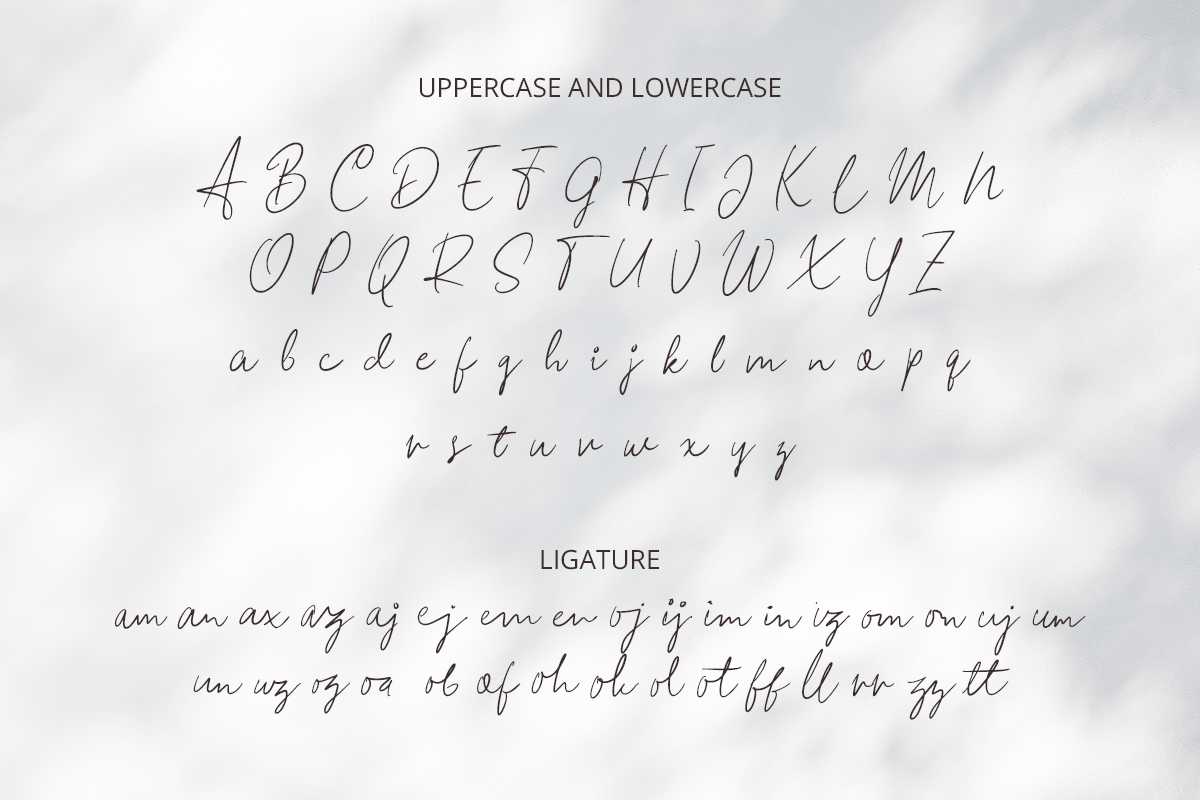 UPPERCASE AND LOWERCASE
A B C D E F G H I J K L M N
O P Q R S T U V W X Y Z
a b c d e f g h i j k l m n o p q
r s t u v w x y z
LIGATURE
am an ax az aj ej em en oj ij im in iz om on uj um
un uz oz oa ob of oh ok ol ot ff ll rr zz tt